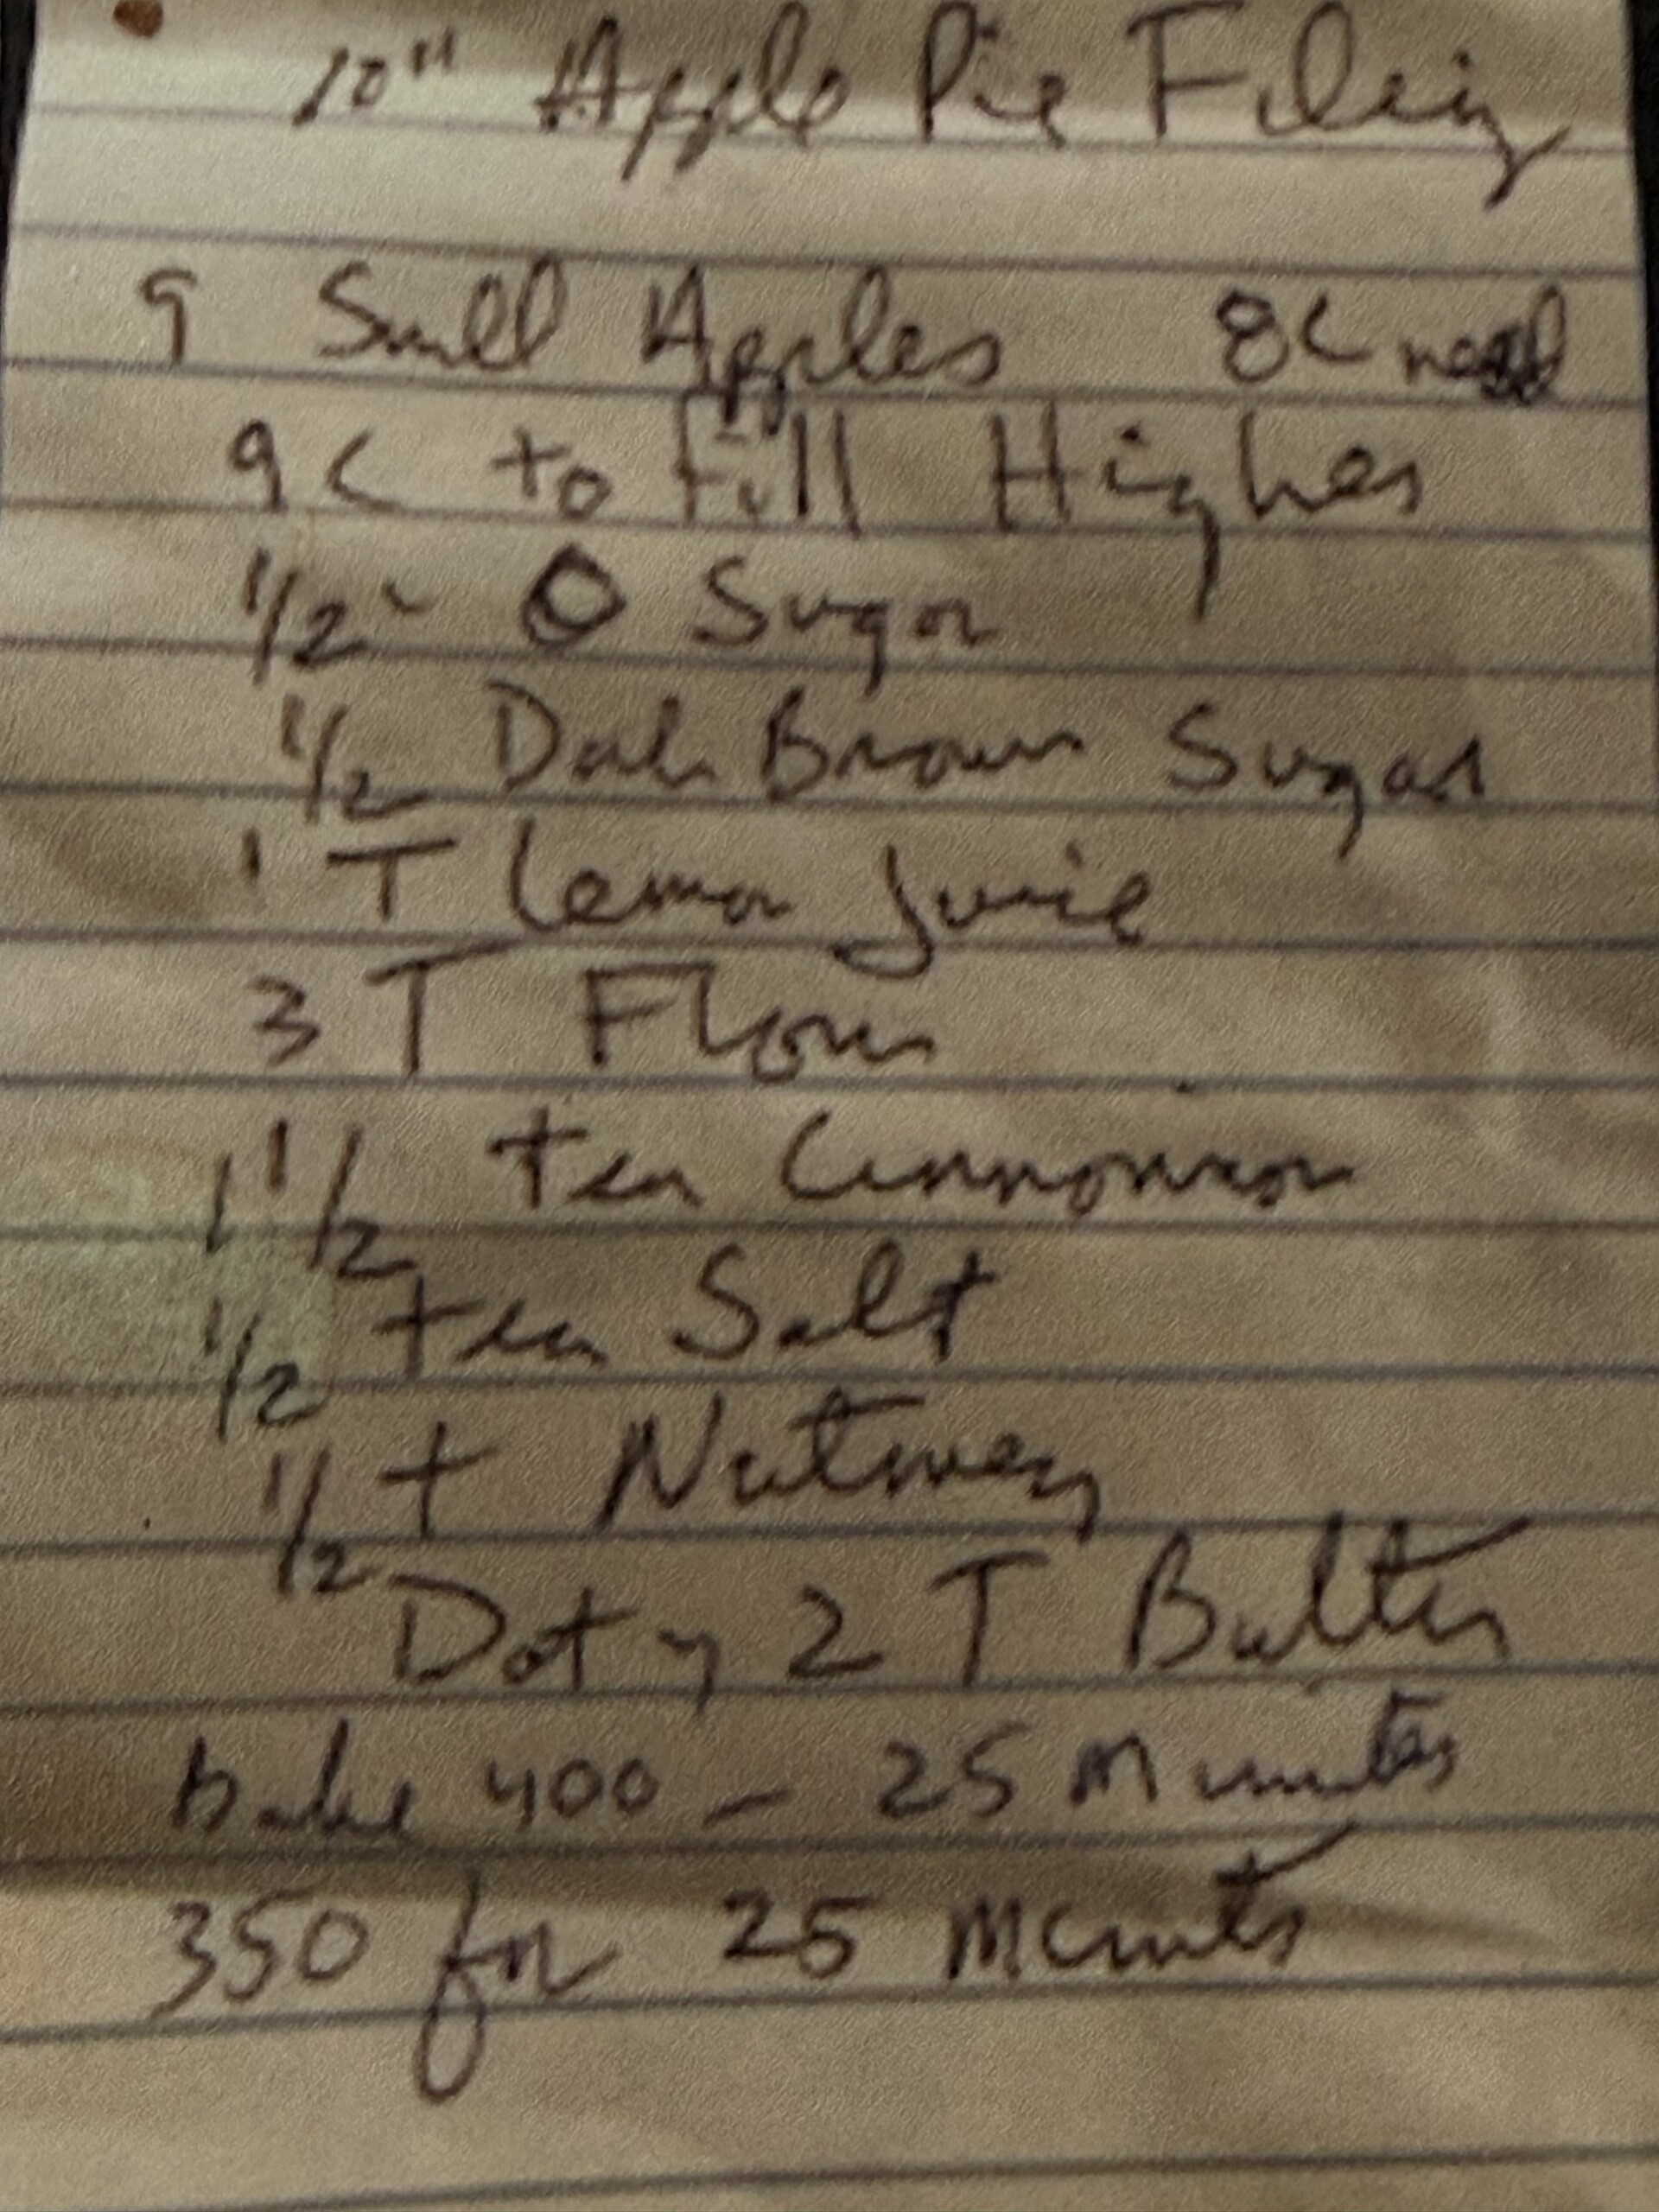 10" Apple Pie Filing
9 Small Apples 8C need
9 C to Fill Higher
1/2 C Sugar
1/2 Dark Brown Sugar
1 T Lemon Juice
3 T Flour
1 1/2 tea Cinnamon
1/2 tea Salt
1/2 t Nutmeg
Dot 2 T Butter
bake 400 - 25 Minutes
350 for 25 Minutes